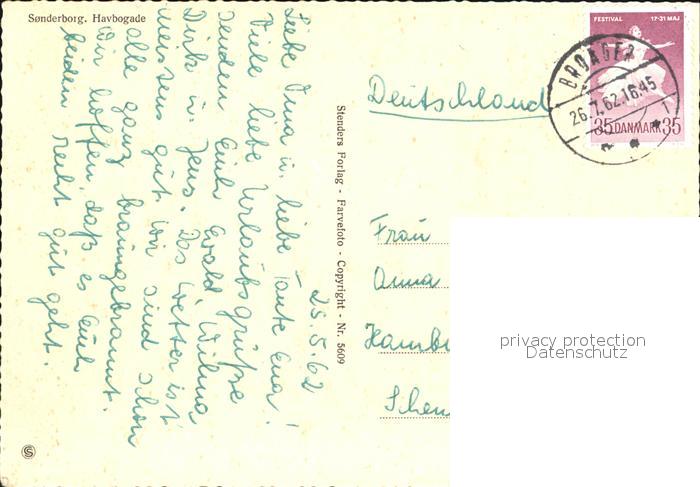 Sønderborg. Havbogade
25.5.62
Liebe Oma u. liebe Tante Eva!
Viele liebe Urlaubsgrüße
senden Euch Ewald Wilma
Dirk u. Jens. Das Wetter ist
meistens gut wir sind schon
alle ganz braungebrannt.
Wir hoffen, daß es Euch
beiden recht gut geht.
Stenders Forlag - Farvefoto - Copyright - Nr. 5609
FESTIVAL 17-31 MAJ
35 DANMARK 35
BROAGER
26.7.62.16.45
Deutschland
Frau
Anna
Hambu
privacy protection
Datenschutz